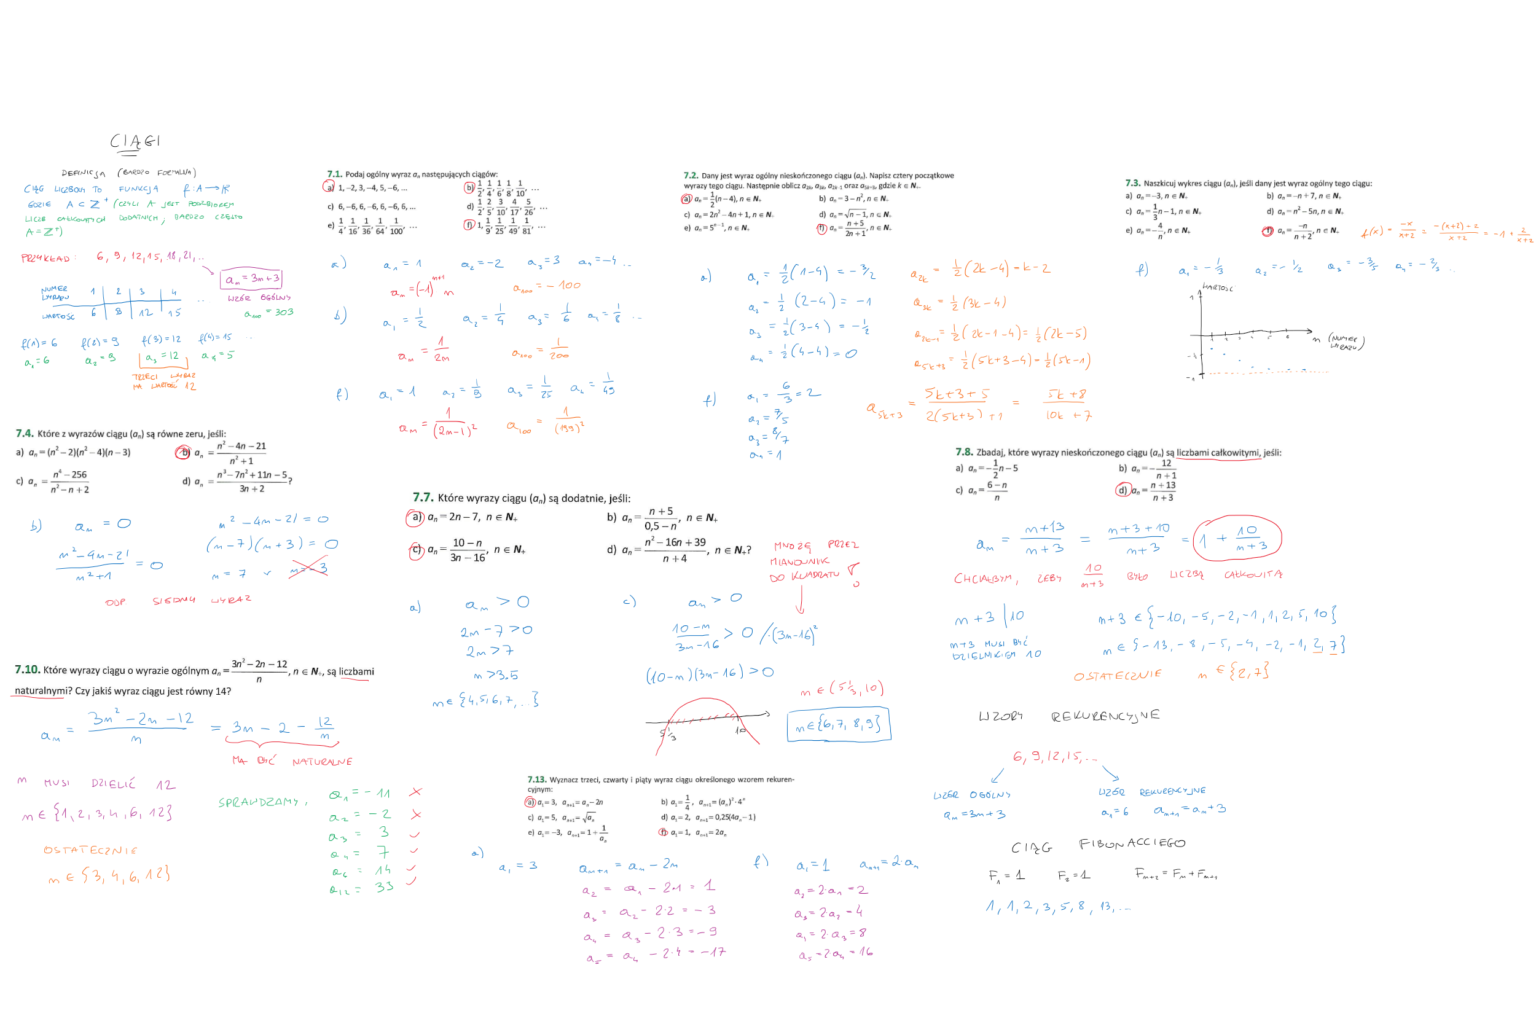 CIĄGI
DEFINICJA (BARDZO FORMALNA)
CIĄG LICZBOWY TO FUNKCJA f: A → R
GDZIE A ⊂ Z⁺ (CZYLI A JEST PODZBIOREM
LICZB CAŁKOWITYCH DODATNICH, BARDZO CZĘSTO
A = Z⁺)
PRZYKŁAD: 6, 9, 12, 15, 18, 21, ..
aₙ = 3n+3
WZÓR OGÓLNY
a₁₀₀ = 303
NUMER WYRAZU 1 | 2 | 3 | 4 ..
WARTOŚĆ 6 | 8 | 12 | 15
f(1) = 6 f(2) = 9 f(3) = 12 f(4) = 15 ..
a₁ = 6 a₂ = 9 a₃ = 12 a₄ = 5
TRZECI WYRAZ
MA WARTOŚĆ 12
7.1. Podaj ogólny wyraz aₙ następujących ciągów:
a) 1, –2, 3, –4, 5, –6, ...
b) 1/2, 1/4, 1/6, 1/8, 1/10, ...
c) 6, –6, 6, –6, 6, –6, 6, ...
d) 1/2, 2/5, 3/10, 4/17, 5/26, ...
e) 1/4, 1/16, 1/36, 1/64, 1/100, ...
f) 1, 1/9, 1/25, 1/49, 1/81, ...
a) a₁ = 1 a₂ = -2 a₃ = 3 a₄ = -4 ..
aₙ = (-1)ⁿ⁺¹ n a₁₀₀ = -100
b) a₁ = 1/2 a₂ = 1/4 a₃ = 1/6 a₄ = 1/8 ..
aₙ = 1/2n a₁₀₀ = 1/200
f) a₁ = 1 a₂ = 1/9 a₃ = 1/25 a₄ = 1/49
aₙ = 1/(2n-1)² a₁₀₀ = 1/(199)²
7.2. Dany jest wyraz ogólny nieskończonego ciągu (aₙ). Napisz cztery początkowe
wyrazy tego ciągu. Następnie oblicz a₂ₖ, a₃ₖ, a₂ₖ₋₁ oraz a₅ₖ₊₃, gdzie k ∈ N₊.
a) aₙ = 1/2(n – 4), n ∈ N₊
b) aₙ = 3 – n², n ∈ N₊
c) aₙ = 2n² – 4n + 1, n ∈ N₊
d) aₙ = √(n – 1), n ∈ N₊
e) aₙ = 5ⁿ⁻¹, n ∈ N₊
f) aₙ = (n + 5)/(2n + 1), n ∈ N₊
a) a₁ = 1/2(1-4) = -3/2 a₂ₖ = 1/2(2k-4) = k-2
a₂ = 1/2(2-4) = -1 a₃ₖ = 1/2(3k-4)
a₃ = 1/2(3-4) = -1/2 a₂ₖ₋₁ = 1/2(2k-1-4) = 1/2(2k-5)
a₄ = 1/2(4-4) = 0 a₅ₖ₊₃ = 1/2(5k+3-4) = 1/2(5k-1)
f) a₁ = 6/3 = 2 a₅ₖ₊₃ = (5k+3+5)/(2(5k+3)+1) = (5k+8)/(10k+7)
a₂ = 7/5
a₃ = 8/7
a₄ = 1
7.3. Naszkicuj wykres ciągu (aₙ), jeśli dany jest wyraz ogólny tego ciągu:
a) aₙ = –3, n ∈ N₊
b) aₙ = –n + 7, n ∈ N₊
c) aₙ = 1/3n – 1, n ∈ N₊
d) aₙ = n² – 5n, n ∈ N₊
e) aₙ = –4/n, n ∈ N₊
f) aₙ = –n/(n + 2), n ∈ N₊
f(x) = -x/(x+2) = (-(x+2)+2)/(x+2) = -1 + 2/(x+2)
f) a₁ = -1/3 a₂ = -1/2 a₃ = -3/5 a₄ = -2/3 ..
WARTOŚĆ
n (NUMER WYRAZU)
7.4. Które z wyrazów ciągu (aₙ) są równe zeru, jeśli:
a) aₙ = (n² – 2)(n² – 4)(n – 3)
b) aₙ = (n² – 4n – 21)/(n² + 1)
c) aₙ = (n⁴ – 256)/(n² – n + 2)
d) aₙ = (n³ – 7n² + 11n – 5)/(3n + 2)?
b) aₙ = 0 n² - 4n - 21 = 0
(n² - 4n - 21)/(n² + 1) = 0 (n-7)(n+3) = 0
n = 7 ∨ n = -3
ODP SIÓDMY WYRAZ
7.7. Które wyrazy ciągu (aₙ) są dodatnie, jeśli:
a) aₙ = 2n – 7, n ∈ N₊
b) aₙ = (n + 5)/(0,5 – n), n ∈ N₊
c) aₙ = (10 – n)/(3n – 16), n ∈ N₊
d) aₙ = (n² – 16n + 39)/(n + 4), n ∈ N₊?
MNOŻĘ PRZEZ
MIANOWNIK
DO KWADRATU!
a) aₙ > 0
2n - 7 > 0
2n > 7
n > 3.5
n ∈ {4, 5, 6, 7, ..}
c) aₙ > 0
(10-n)/(3n-16) > 0 /·(3n-16)²
(10-n)(3n-16) > 0
5 1/3 10
n ∈ (5 1/3, 10)
n ∈ {6, 7, 8, 9}
7.8. Zbadaj, które wyrazy nieskończonego ciągu (aₙ) są liczbami całkowitymi, jeśli:
a) aₙ = –1/2n – 5
b) aₙ = –12/(n + 1)
c) aₙ = (6 – n)/n
d) aₙ = (n + 13)/(n + 3)
aₙ = (n+13)/(n+3) = (n+3+10)/(n+3) = 1 + 10/(n+3)
CHCIAŁBYM, ŻEBY 10/(n+3) BYŁO LICZBĄ CAŁKOWITĄ
n+3 | 10 n+3 ∈ {-10, -5, -2, -1, 1, 2, 5, 10}
n+3 MUSI BYĆ
DZIELNIKIEM 10
n ∈ {-13, -8, -5, -4, -2, -1, 2, 7}
OSTATECZNIE n ∈ {2, 7}
7.10. Które wyrazy ciągu o wyrazie ogólnym aₙ = (3n² – 2n – 12)/n, n ∈ N₊, są liczbami
naturalnymi? Czy jakiś wyraz ciągu jest równy 14?
aₙ = (3n² - 2n - 12)/n = 3n - 2 - 12/n
MA BYĆ NATURALNE
n MUSI DZIELIĆ 12
n ∈ {1, 2, 3, 4, 6, 12}
OSTATECZNIE
n ∈ {3, 4, 6, 12}
SPRAWDZAMY,
a₁ = -11 ×
a₂ = -2 ×
a₃ = 3 ✓
a₄ = 7 ✓
a₆ = 14 ✓
a₁₂ = 33 ✓
7.13. Wyznacz trzeci, czwarty i piąty wyraz ciągu określonego wzorem rekuren-
cyjnym:
a) a₁ = 3, aₙ₊₁ = aₙ – 2n
b) a₁ = 1/4, aₙ₊₁ = (aₙ)² · 4ⁿ
c) a₁ = 5, aₙ₊₁ = √aₙ
d) a₁ = 2, aₙ₊₁ = 0,25(4aₙ – 1)
e) a₁ = –3, aₙ₊₁ = 1 + 1/aₙ
f) a₁ = 1, aₙ₊₁ = 2aₙ
a) a₁ = 3 aₙ₊₁ = aₙ - 2n
a₂ = a₁ - 2·1 = 1
a₃ = a₂ - 2·2 = -3
a₄ = a₃ - 2·3 = -9
a₅ = a₄ - 2·4 = -17
f) a₁ = 1 aₙ₊₁ = 2·aₙ
a₂ = 2·a₁ = 2
a₃ = 2a₂ = 4
a₄ = 2a₃ = 8
a₅ = 2a₄ = 16
WZORY REKURENCYJNE
6, 9, 12, 15, ..
WZÓR OGÓLNY
aₙ = 3n+3
WZÓR REKURENCYJNY
a₁ = 6 aₙ₊₁ = aₙ + 3
CIĄG FIBONACCIEGO
F₁ = 1 F₂ = 1 Fₙ₊₂ = Fₙ + Fₙ₊₁
1, 1, 2, 3, 5, 8, 13, ..